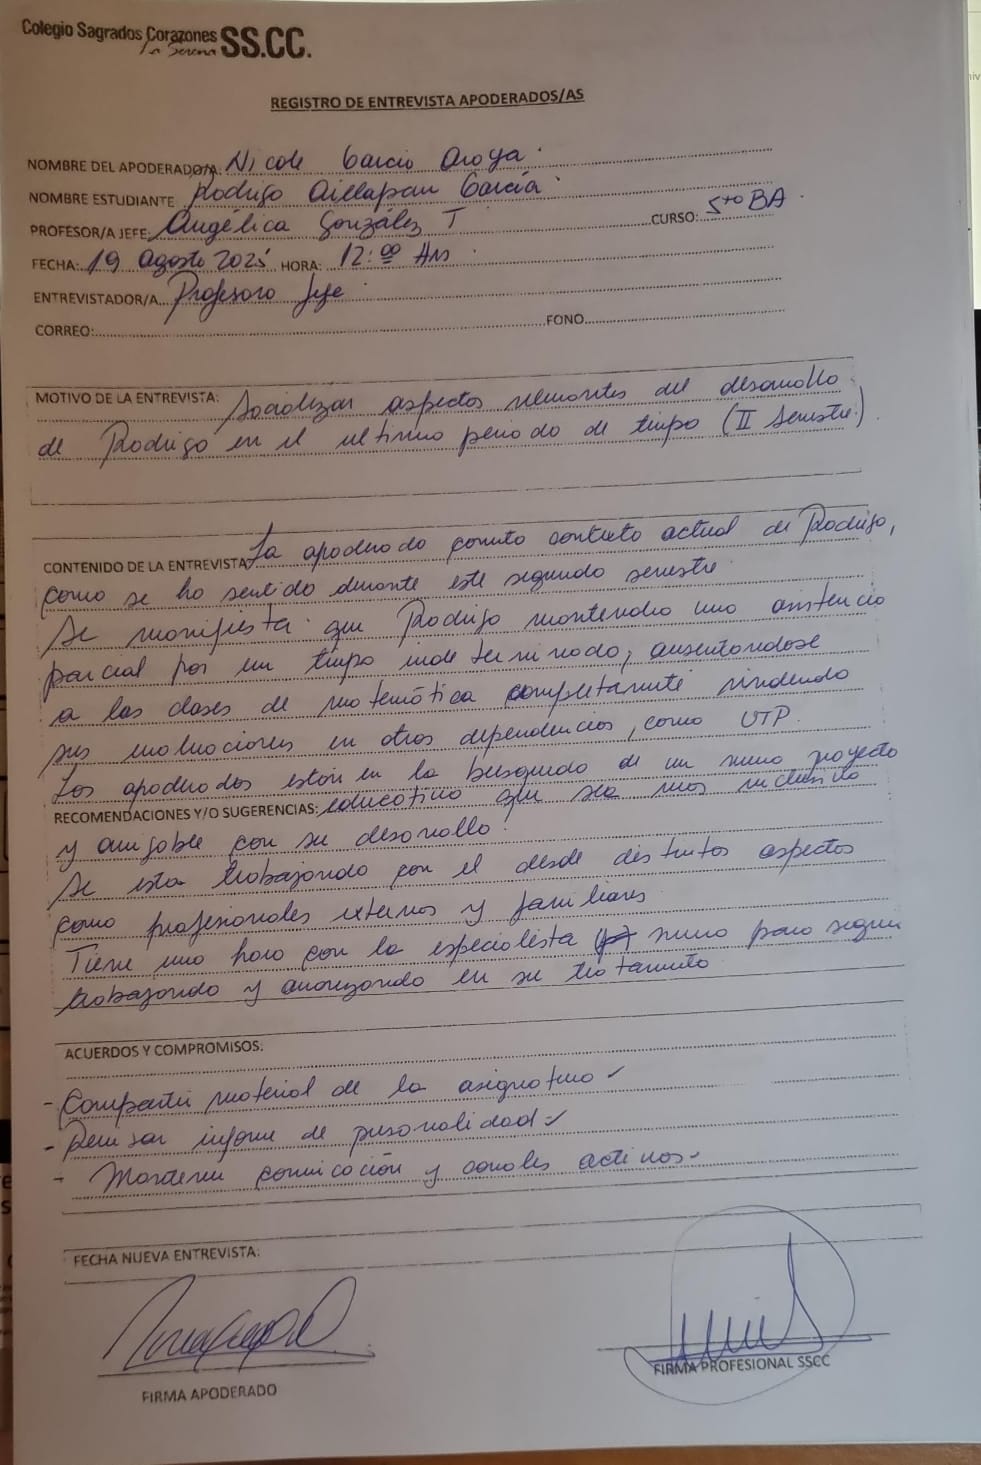 Colegio Sagrados Corazones
La Serena SS.CC.
REGISTRO DE ENTREVISTA APODERADOS/AS
NOMBRE DEL APODERADO/A: Nicole García Araya
NOMBRE ESTUDIANTE Rodrigo Aillapan García
PROFESOR/A JEFE: Angélica González T CURSO: 5to BA
FECHA: 19 agosto 2025 HORA: 12:00 Hrs
ENTREVISTADOR/A Profesora Jefe
CORREO: FONO
MOTIVO DE LA ENTREVISTA: Socializar aspectos relevantes del desarrollo
de Rodrigo en el ultimo periodo de tiempo (II Semestre)
CONTENIDO DE LA ENTREVISTA La apoderado comenta contexto actual de Rodrigo,
como se ha sentido durante este segundo semestre
Se manifiesta que Rodrigo mantendrá una asistencia
parcial por un tiempo indeterminado, ausentandose
a las clases de matemática completamente rindiendo
sus evaluaciones en otras dependencias, como UTP.
Los apoderados están en la busqueda de un nuevo proyecto
RECOMENDACIONES Y/O SUGERENCIAS: educativo que sea mas inclusivo
y amigable con su desarrollo.
Se esta trabajando con el desde distintos aspectos
como profesionales externos y familiares
Tiene una hora con la especialista nuevo para seguir
trabajando y avanzando en su tratamiento
ACUERDOS Y COMPROMISOS:
- Compartir material de la asignatura
- Revisar informe de personalidad
- Mantener comunicación y canales activos
FECHA NUEVA ENTREVISTA:
FIRMA APODERADO
FIRMA PROFESIONAL SSCC